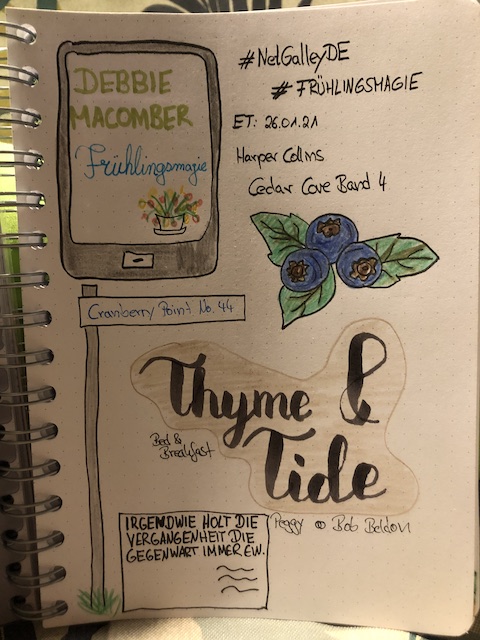 DEBBIE
MACOMBER
Frühlingsmagie
#NetGalleyDE
#FRÜHLINGSMAGIE
ET: 26.01.21
Harper Collins
Cedar Cove Band 4
Cranberry Point No. 44
Thyme &
Tide
Bed &
Breakfast
Peggy & Bob Beldon
IRGENDWIE HOLT DIE
VERGANGENHEIT DIE
GEGENWART IMMER EIN.